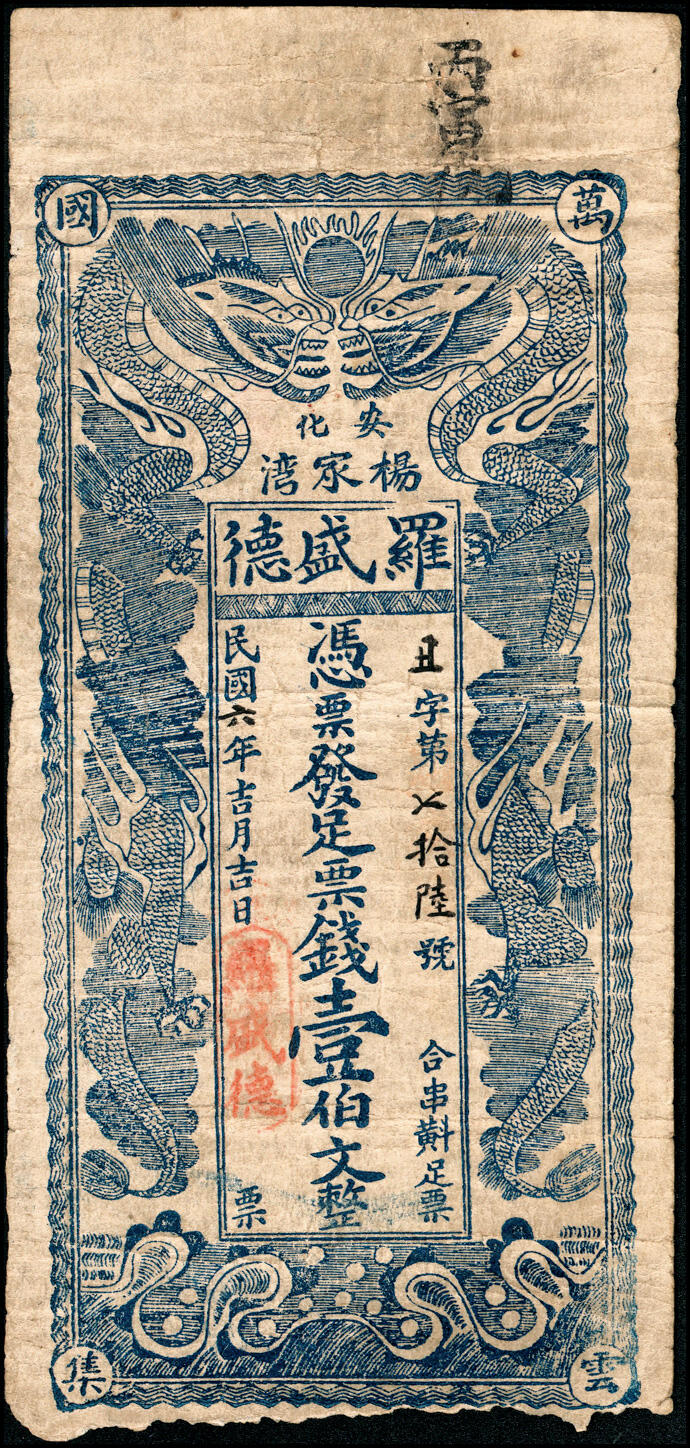 丙寅
萬國雲集
安化
楊家湾
羅盛德
丑字第乂拾陸號
合串斢足票
憑票發足票錢壹伯文整
民國六年吉月吉日
票
羅盛德